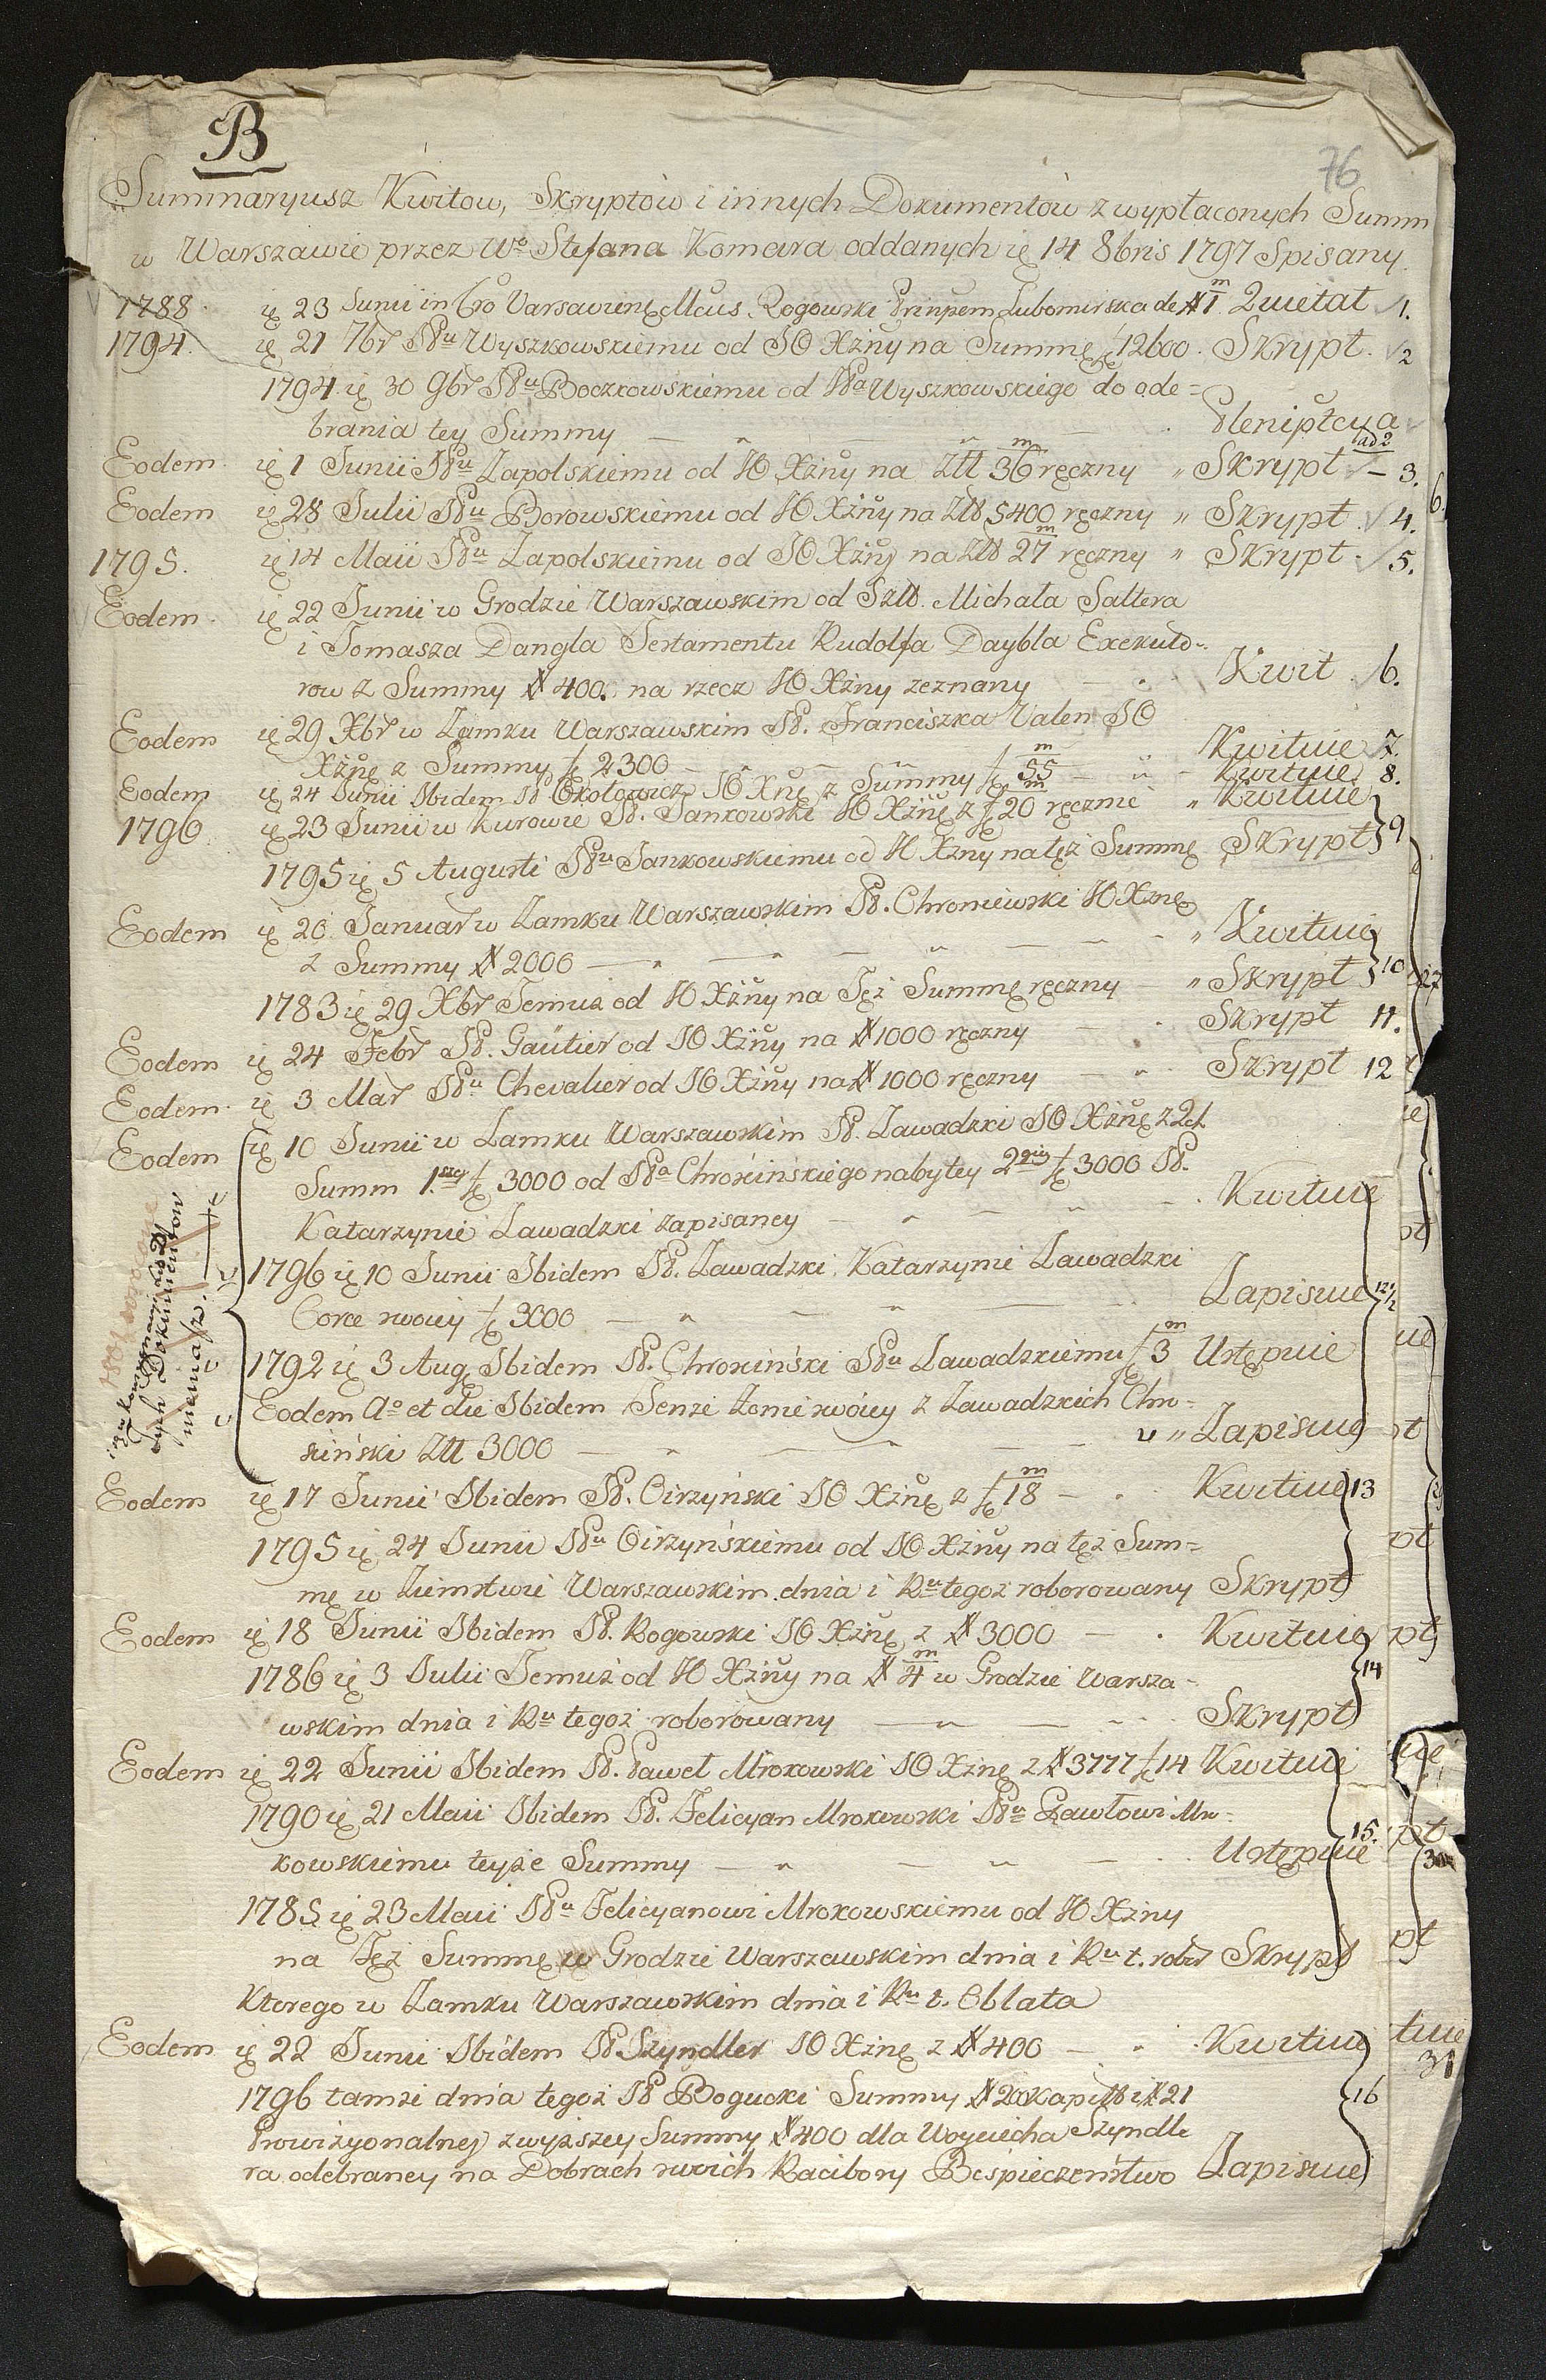 B
76
Summaryusz Kwitow, Skryptów i innych Dokumentów z wypłaconych Summ
w Warszawie przez We Stefana Komara oddanych ię 14 8bris 1797 Spisany
1788. ię 23 Junii in Cro Varsavien Mcus Rogowski Prinpem Lubomirska de # 1m Quietat 1.
1794. ię 21 7br JPu Wyszkowskiemu od JO Xżny na Summę 12600. Skrypt. 2
1794 ię 30 9br JPu Boczkowskiemu od JPa Wyszkowskiego do ode=
brania tey Summy Plenipłcya ad 2
Eodem ię 1 Junii JPu Zapolskiemu od JO Xżny na Złł 36m ręczny Skrypt 3.
Eodem ię 28 Julii JPu Borowskiemu od JO Xżny na Złł 5400 ręczny Skrypt 4.
1795. ię 14 Maii JPu Zapolskiemu od JO Xżny na Złł 27m ręczny Skrypt 5.
Eodem ię 22 Junii w Grodzie Warszawskim od Michała Saltera
i Tomasza Dangla Testamentu Rudolfa Daybla Exekuto=
row z Summy # 400. na rzecz JO Xżny zeznany Kwit 6.
Eodem ię 29 Xbr w Zamku Warszawskim JP. Franciszka Valen JO
Xżnę z Summy 2300 Kwituie 7.
Eodem ię 24 Junii Ibidem JP Okołowicz JO Xnę z Summy 55m Kwituie 8.
1796 ię 23 Junii w Kurowie JP. Jankowski JO Xżnę z 20m ręcznie Kwituie
1795 ię 5 Augusti JPu Jankowskiemu od JO Xżny na tęż Summę Skrypt 9
Eodem ię 20 Januar w Zamku Warszawskim JP. Chroniewski JO Xżnę
z Summy # 2000 Kwituie
1783 ię 29 Xbr Temuż od JO Xżny na Tęż Summę ręczny Skrypt 10 27
Eodem ię 24 Febr JP. Gautier od JO Xżny na # 1000 ręczny Skrypt 11.
Eodem ię 3 Mar JPu Chevalier od JO Xżny na # 1000 ręczny Skrypt 12
Eodem ię 10 Junii w Zamku Warszawskim JP. Zawadzki JO Xżnę z 2ch
Summ 1szey 3000 od JPa Chrościńskiego nabytey 2giey 3000 JP.
Katarzynie Zawadzki zapisaney Kwituie
1796 ię 10 Junii Ibidem JP. Zawadzki Katarzynie Zawadzki
Corce swoiey 3000 Zapisuie 12 1/2
1792 ię 3 Aug Ibidem JP. Chrościński JPu Zawadzkiemu 3m Ustępuie
Eodem Ao et die Ibidem Tenże Żonie swoiey z Zawadzkich Chro=
ściński Złł 3000 Zapisuie
tych Dokumentow
niemasz.
Eodem ię 17 Junii Ibidem JP. Cirzyński JO Xżnę z 18m Kwituie 13
1795 ię 24 Junii JPu Cirzyńskiemu od JO Xżny na tęż Sum=
mę w Ziemstwie Warszawskim dnia i Ru tegoż roborowany Skrypt
Eodem ię 18 Junii Ibidem JP. Rogowski JO Xżnę z # 3000 Kwituie
1786 ię 3 Julii Temuż od JO Xżny na # 4m w Grodzie Warsza= 14
wskim dnia i Ru tegoż roborowany Skrypt
Eodem ię 22 Junii Ibidem JP. Paweł Mrokowski JO Xżnę z # 3777 14 Kwituie
1790 ię 21 Maii Ibidem JP. Felicyan Mrokowski JPu Pawłowi Mro=
kowskiemu teyże Summy Ustępuie 15.
30
1785 ię 23 Maii JPu Felicyanowi Mrokowskiemu od JO Xżny
na Tęż Summę w Grodzie Warszawskim dnia i Ru t. robor Skrypt
Ktorego w Zamku Warszawskim dnia i Ru t. Oblata
Eodem ię 22 Junii Ibidem JP Szyndler JO Xżnę z # 400 Kwituie
31
1796 tamże dnia tegoż JP Bogucki Summy # 200 kapitł i # 21 16
Prowizyonalney zwyższey Summy # 400 dla Woyciecha Szyndle
ra odebraney na Dobrach swoich Racibory Bespieczeństwo Zapisuie